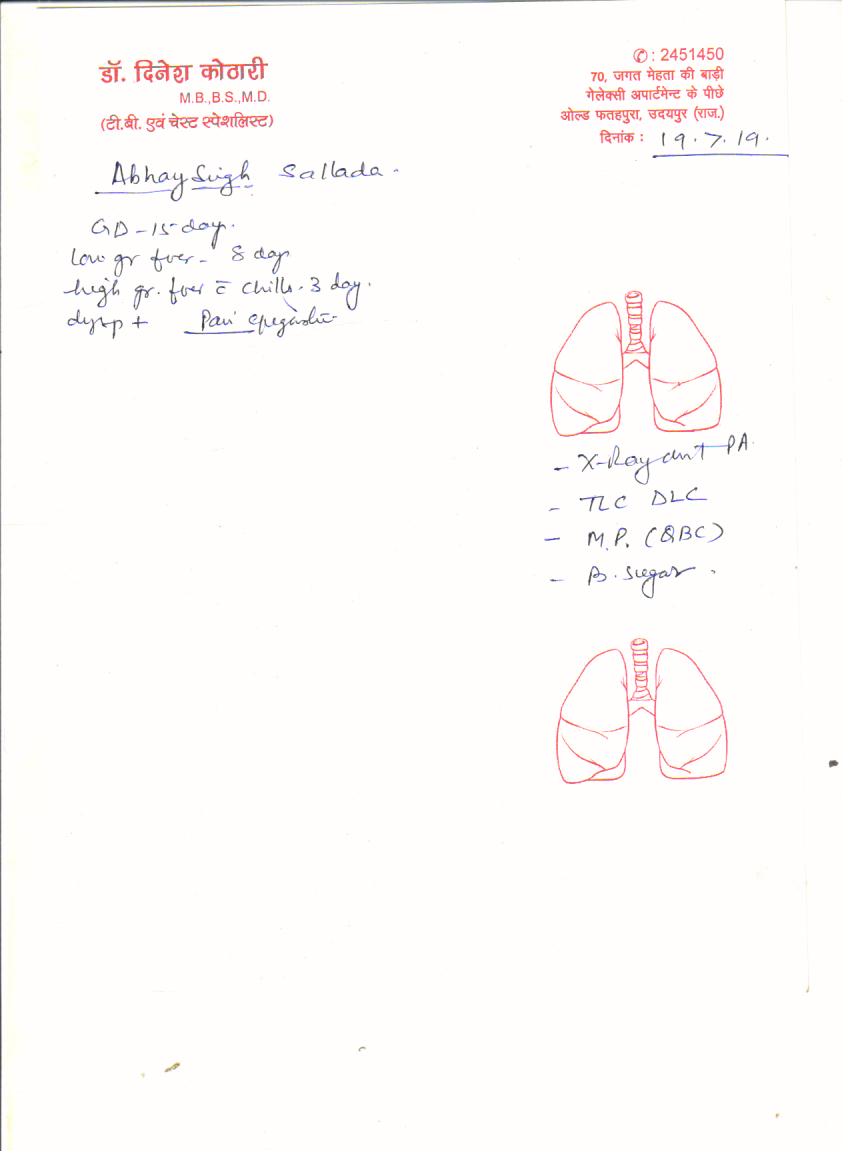 डॉ. दिनेश कोठारी
M.B.,B.S.,M.D.
(टी.बी. एवं चेस्ट स्पेशलिस्ट)
✆: 2451450
70, जगत मेहता की बाड़ी
गेलेक्सी अपार्टमेन्ट के पीछे
ओल्ड फतहपुरा, उदयपुर (राज.)
दिनांक : 19.7.19.
Abhay Singh Sallada.
GD - 15 day.
low gr fver - 8 day
high gr. fver c̄ chills. 3 day.
+ Pain epigastric
- X-Ray PA.
- TLC DLC
- M.P. (QBC)
- B. Sugar.